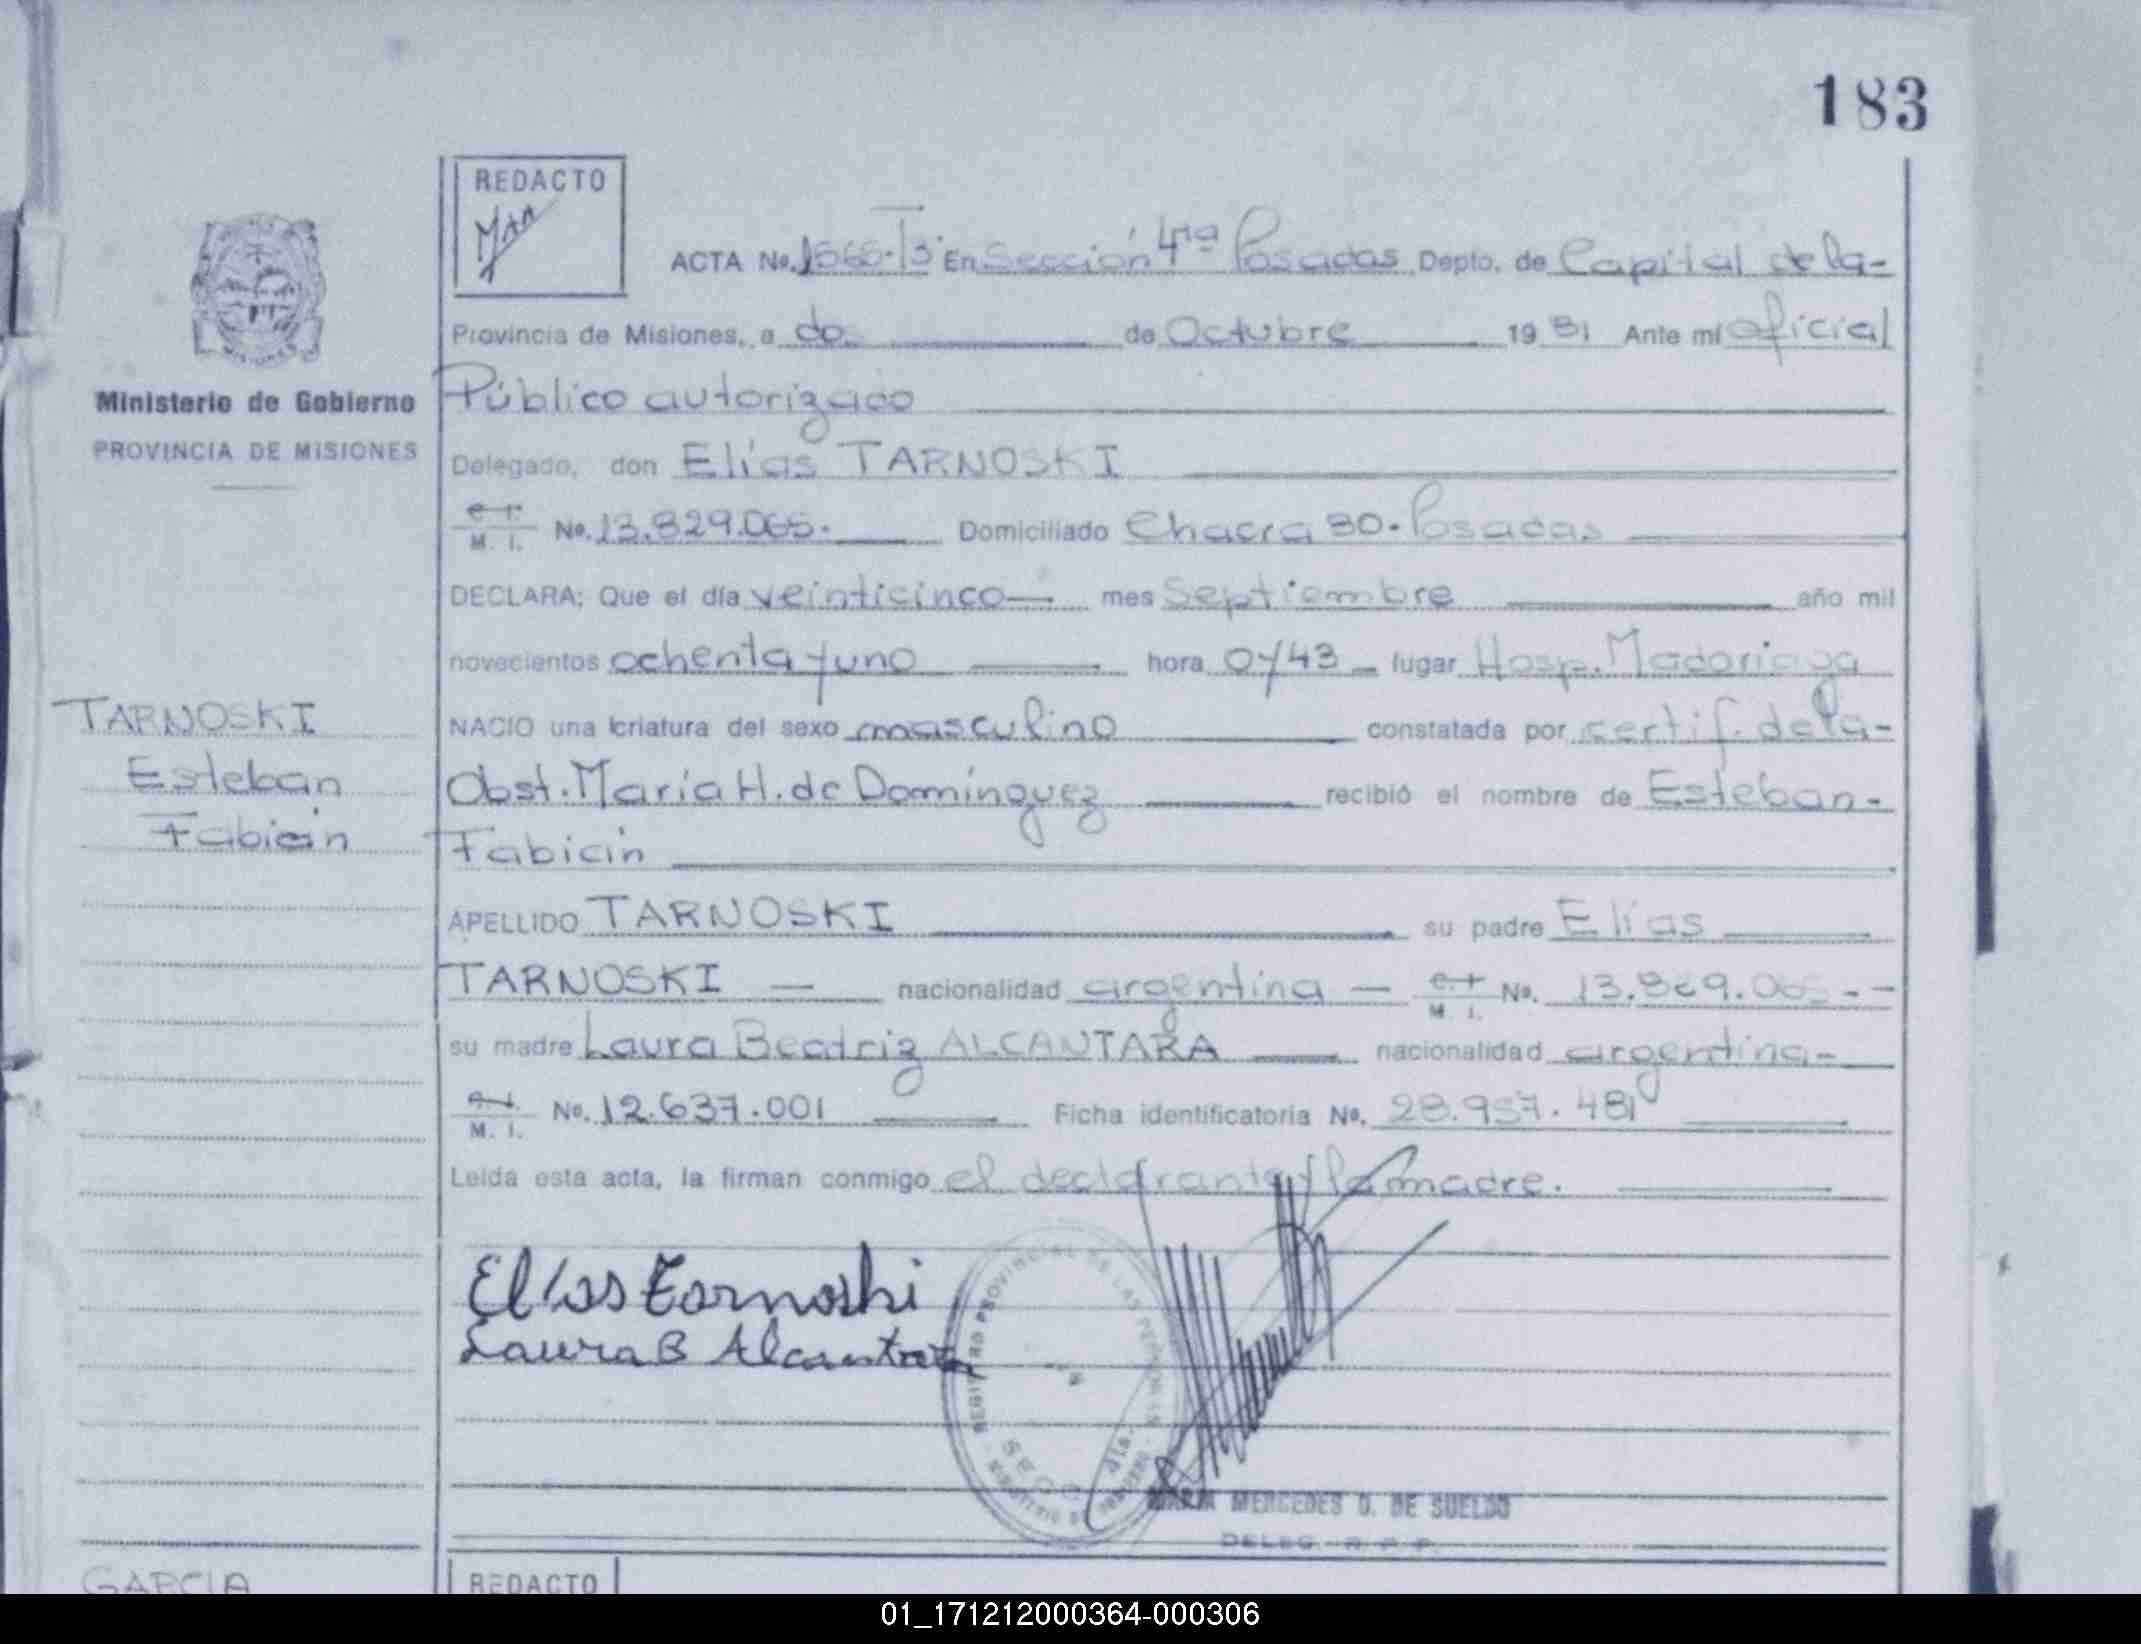 183
REDACTO
ACTA No. 1566-T3 En Sección 4ta Posadas Depto. de Capital de la-
Provincia de Misiones, a do. de Octubre 1981 Ante mí oficial
Ministerio de Gobierno
PROVINCIA DE MISIONES
Público autorizado
Delegado, don Elías TARNOSKI
M. I. No. 13.829.065. Domiciliado Chacra 30. Posadas
DECLARA; Que el día veinticinco mes Septiembre año mil
novecientos ochenta y uno hora 0y43 lugar Hosp. Madariaga
TARNOSKI
Esteban
Fabián
NACIO una criatura del sexo masculino constatada por certif. de la-
Obst. María H. de Domínguez recibió el nombre de Esteban-
Fabián
APELLIDO TARNOSKI su padre Elías
TARNOSKI — nacionalidad argentina — M. I. No. 13.829.065--
su madre Laura Beatriz ALCANTARA nacionalidad argentina-
M. I. No. 12.637.001 Ficha identificatoria No. 28.957.481
Leida esta acta, la firman conmigo el declarante y la madre.
Elías Tarnoski
Laura B Alcantara
REGISTRO PROVINCIAL DE LAS PERSONAS
MARIA MERCEDES D. DE SUELDO
DELEG. R. P. P.
GARCIA
REDACTO
01_171212000364-000306